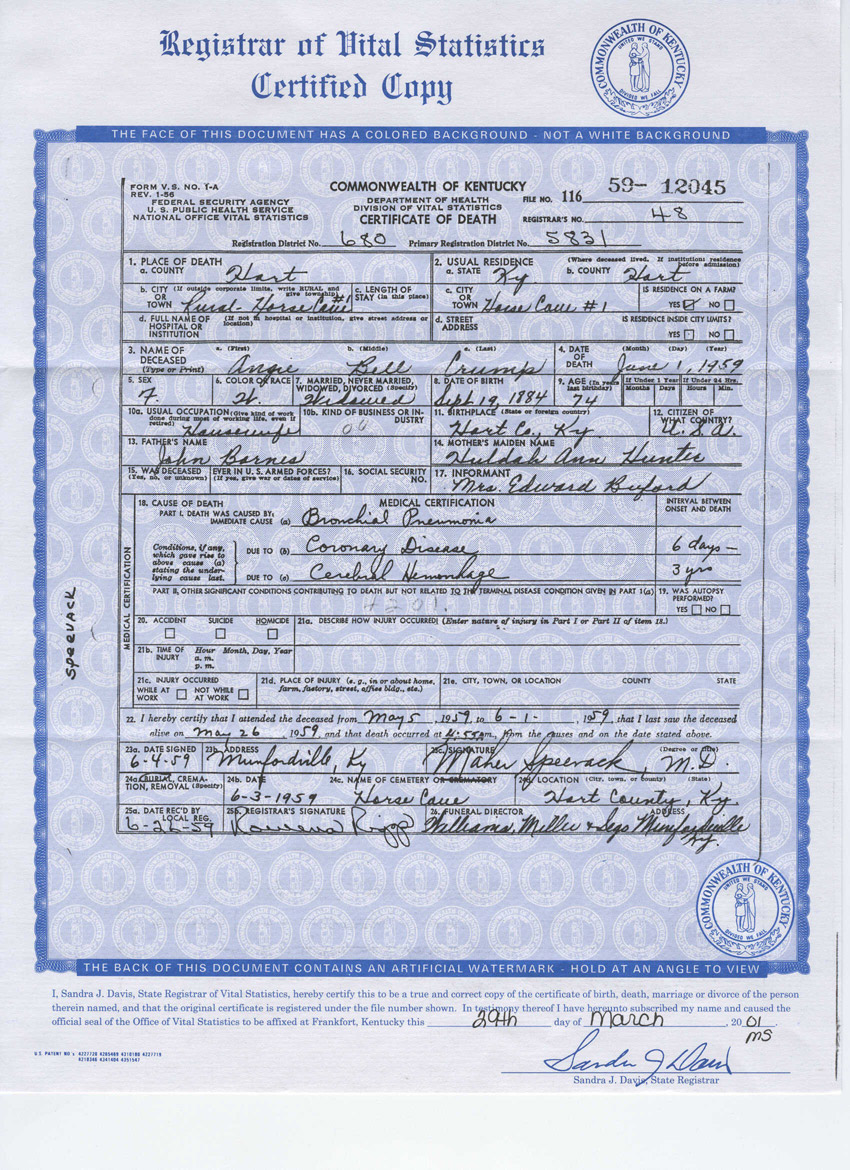 Registrar of Vital Statistics
Certified Copy
COMMONWEALTH OF KENTUCKY
UNITED WE STAND
DIVIDED WE FALL
THE FACE OF THIS DOCUMENT HAS A COLORED BACKGROUND - NOT A WHITE BACKGROUND
FORM V.S. NO. 1-A
REV. 1-56
FEDERAL SECURITY AGENCY
U. S. PUBLIC HEALTH SERVICE
NATIONAL OFFICE VITAL STATISTICS
COMMONWEALTH OF KENTUCKY
DEPARTMENT OF HEALTH
DIVISION OF VITAL STATISTICS
CERTIFICATE OF DEATH
FILE NO. 116 59- 12045
REGISTRAR'S NO. 48
Registration District No. 680 Primary Registration District No. 5831
1. PLACE OF DEATH
a. COUNTY Hart
2. USUAL RESIDENCE (Where deceased lived. If institution: residence before admission)
a. STATE Ky b. COUNTY Hart
b. CITY (If outside corporate limits, write RURAL and give township) OR TOWN Rural - Horse Cave #1
c. LENGTH OF STAY (in this place)
c. CITY OR TOWN Horse Cave #1
IS RESIDENCE ON A FARM?
YES NO
d. FULL NAME OF (If not in hospital or institution, give street address or location) HOSPITAL OR INSTITUTION
d. STREET ADDRESS
IS RESIDENCE INSIDE CITY LIMITS?
YES NO
3. NAME OF DECEASED (Type or Print) a. (First) b. (Middle) c. (Last)
Angie Bell Crump
4. DATE OF DEATH (Month) (Day) (Year)
June 1, 1959
5. SEX F.
6. COLOR OR RACE W.
7. MARRIED, NEVER MARRIED, WIDOWED, DIVORCED (Specify) Widowed
8. DATE OF BIRTH Sept 19, 1884
9. AGE (In years last birthday) 74
If Under 1 Year Months Days
If Under 24 Hrs. Hours Min.
10a. USUAL OCCUPATION (Give kind of work done during most of working life, even if retired) Housewife
10b. KIND OF BUSINESS OR INDUSTRY 00
11. BIRTHPLACE (State or foreign country) Hart Co., Ky.
12. CITIZEN OF WHAT COUNTRY? U.S.A.
13. FATHER'S NAME
John Barnes
14. MOTHER'S MAIDEN NAME
Huldah Ann Hunter
15. WAS DECEASED EVER IN U. S. ARMED FORCES?
(Yes, no, or unknown) (If yes, give war or dates of service)
16. SOCIAL SECURITY NO.
17. INFORMANT
Mrs. Edward Buford
MEDICAL CERTIFICATION
18. CAUSE OF DEATH MEDICAL CERTIFICATION
INTERVAL BETWEEN ONSET AND DEATH
PART I. DEATH WAS CAUSED BY:
IMMEDIATE CAUSE (a) Bronchial Pneumonia
Conditions, if any, which gave rise to above cause (a) stating the underlying cause last.
DUE TO (b) Coronary Disease 6 days -
DUE TO (c) Cerebral Hemorrhage 3 yrs
PART II, OTHER SIGNIFICANT CONDITIONS CONTRIBUTING TO DEATH BUT NOT RELATED TO THE TERMINAL DISEASE CONDITION GIVEN IN PART I(a)
4201.
19. WAS AUTOPSY PERFORMED?
YES NO
20. ACCIDENT SUICIDE HOMICIDE
21a. DESCRIBE HOW INJURY OCCURRED: (Enter nature of injury in Part I or Part II of item 18.)
21b. TIME OF INJURY Hour Month, Day, Year
a. m.
p. m.
21c. INJURY OCCURRED
WHILE AT WORK NOT WHILE AT WORK
21d. PLACE OF INJURY (e. g., in or about home, farm, factory, street, office bldg., etc.)
21e. CITY, TOWN, OR LOCATION COUNTY STATE
22. I hereby certify that I attended the deceased from May 5, 1959, to 6-1-, 1959, that I last saw the deceased
alive on May 26, 1959, and that death occurred at 4:55 a m., from the causes and on the date stated above.
23a. DATE SIGNED 6-4-59
23b. ADDRESS Munfordville, Ky
23c. SIGNATURE (Degree or title)
Maher Speevack, M.D.
24a. BURIAL, CREMATION, REMOVAL (Specify)
24b. DATE 6-3-1959
24c. NAME OF CEMETERY OR CREMATORY Horse Cave
24d. LOCATION (City, town, or county) (State)
Hart County, Ky.
25a. DATE REC'D BY LOCAL REG. 6-26-59
25b. REGISTRAR'S SIGNATURE
26. FUNERAL DIRECTOR ADDRESS
Williams, Miller & Sego Munfordville Ky.
SPEEVACK
COMMONWEALTH OF KENTUCKY
UNITED WE STAND
DIVIDED WE FALL
THE BACK OF THIS DOCUMENT CONTAINS AN ARTIFICIAL WATERMARK - HOLD AT AN ANGLE TO VIEW
I, Sandra J. Davis, State Registrar of Vital Statistics, hereby certify this to be a true and correct copy of the certificate of birth, death, marriage or divorce of the person
therein named, and that the original certificate is registered under the file number shown. In testimony thereof I have hereunto subscribed my name and caused the
official seal of the Office of Vital Statistics to be affixed at Frankfort, Kentucky this 29th day of March, 2001.
MS
U.S. PATENT NO's 4227720 4265469 4210186 4227719
4210346 4341404 4351547
Sandra J Davis
Sandra J. Davis, State Registrar